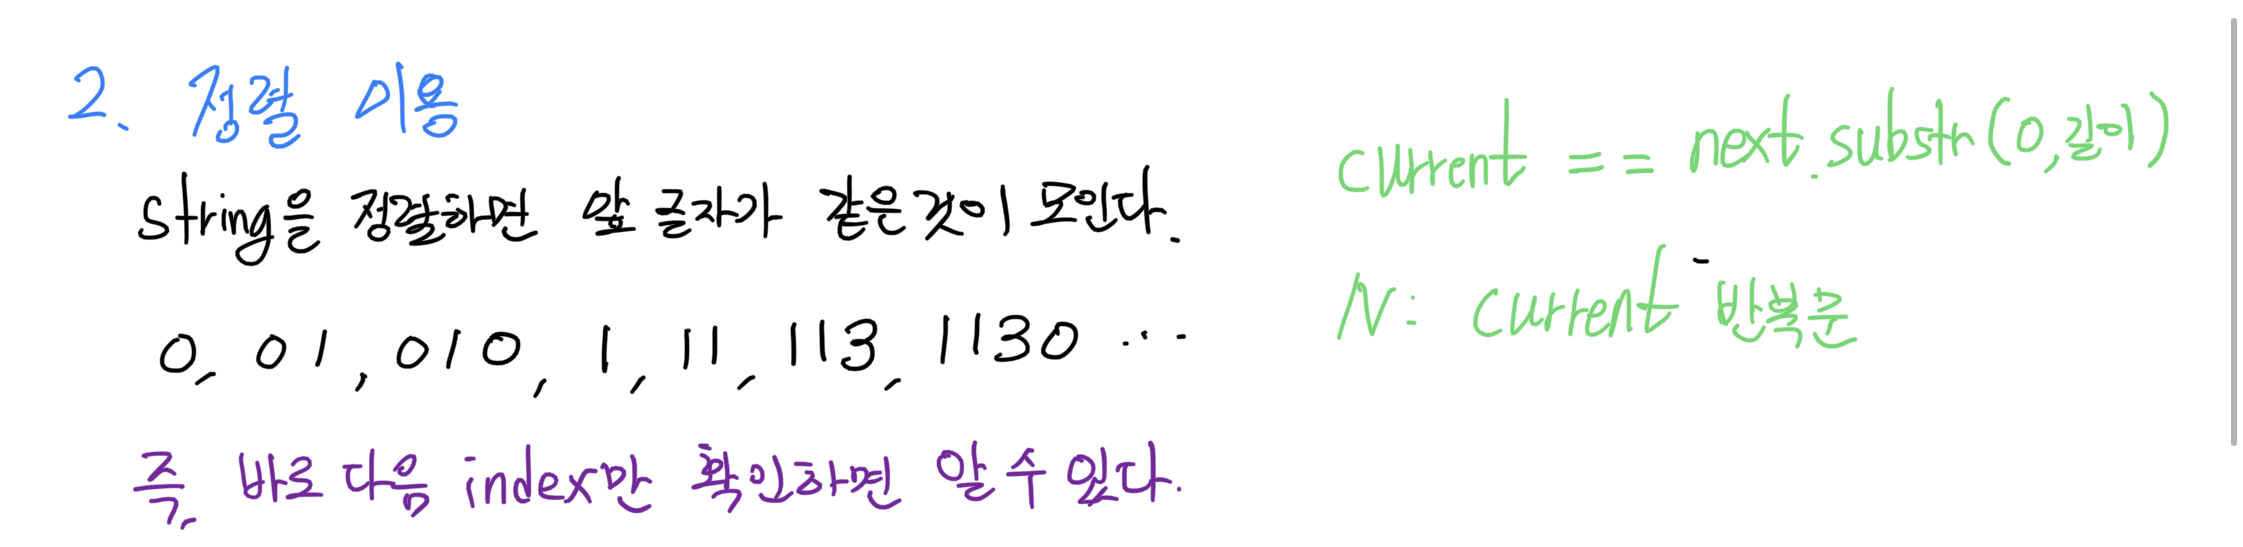 2. 정렬 이용
string을 정렬하면 앞 글자가 같은것이 모인다.
0, 01, 010, 1, 11, 113, 1130 ...
즉, 바로 다음 index만 확인하면 알 수 있다.
current == next.substr(0,길이)
N: current 반복문